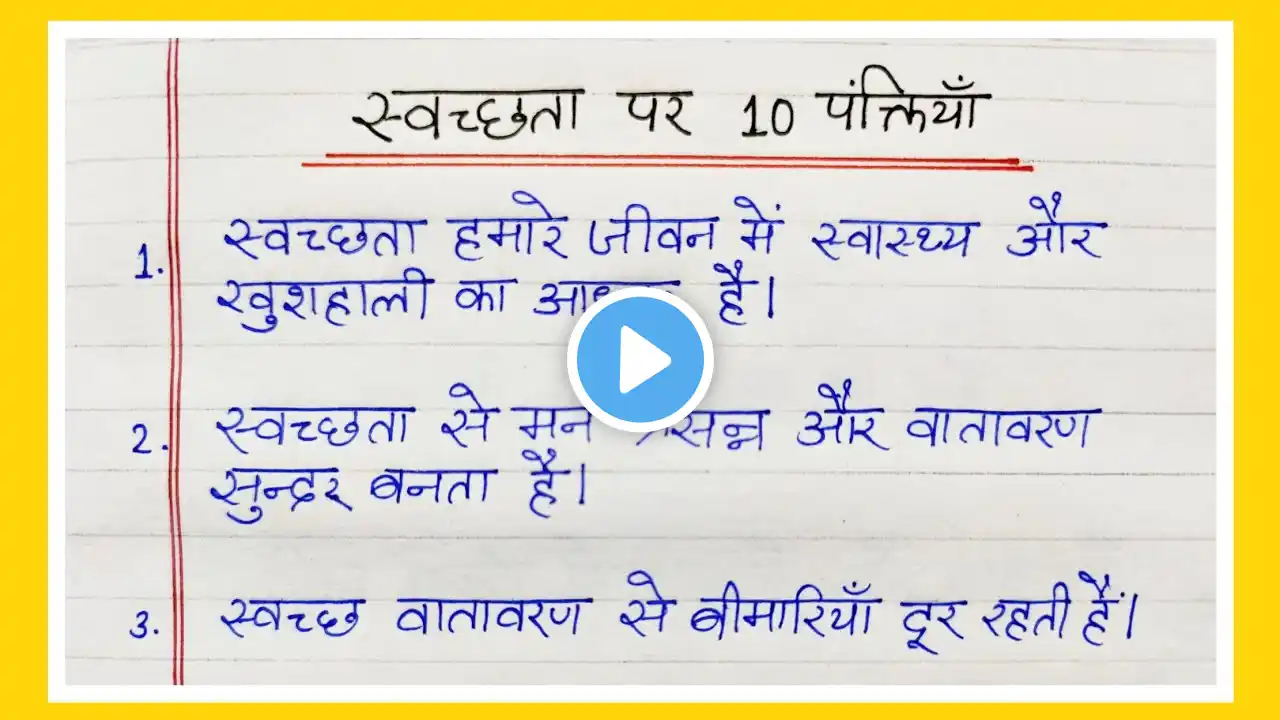 स्वच्छता पर 10 पंक्तियाँ
1. स्वच्छता हमारे जीवन में स्वास्थ्य और
खुशहाली का है।
2. स्वच्छता से मन और वातावरण
सुन्दर बनता है।
3. स्वच्छ वातावरण से बीमारियाँ दूर रहती हैं।